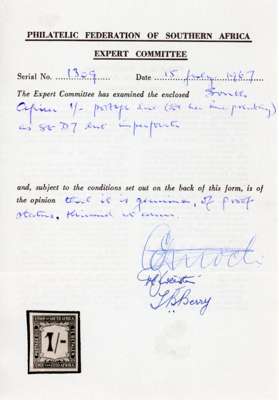 PHILATELIC FEDERATION OF SOUTHERN AFRICA
EXPERT COMMITTEE
Serial No. 1309 Date 15 July 1967
The Expert Committee has examined the enclosed South
African 1/- postage due
as SG D7 but imperforate
and, subject to the conditions set out on the back of this form, is of
the opinion that it is genuine, of proof
status, thinned at
1/-